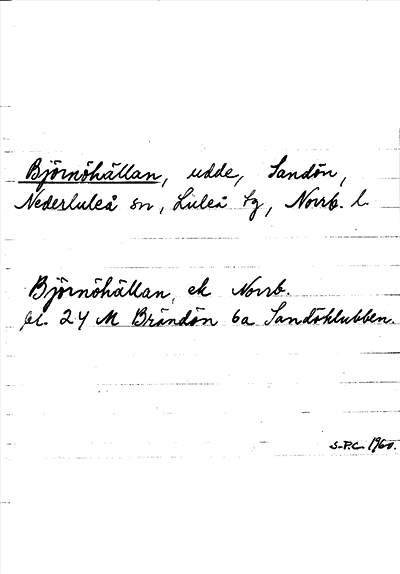 Björnöhällan, udde, Sandön,
Nederluleå sn, Luleå tg, Norrb. l.
Björnöhällan, ek Norrb.
bl. 24 M Brändön 6a Sandöklubben.
S.P.C. 1960.